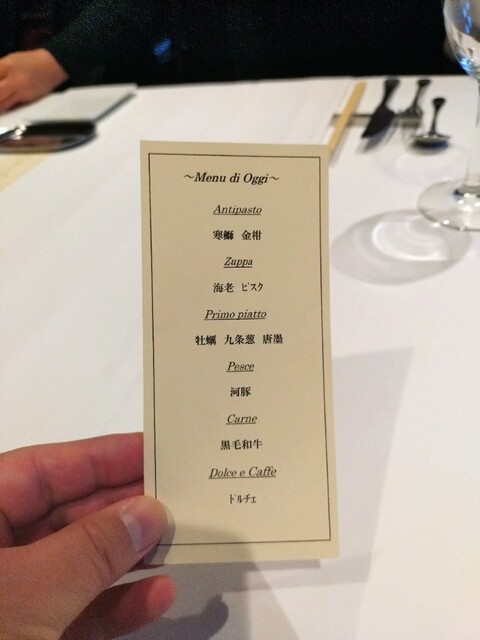 ～Menu di Oggi～
Antipasto
寒鰤 金柑
Zuppa
海老 ビスク
Primo piatto
牡蠣 九条葱 唐墨
Pesce
河豚
Carne
黒毛和牛
Dolce e Caffe
ドルチェ